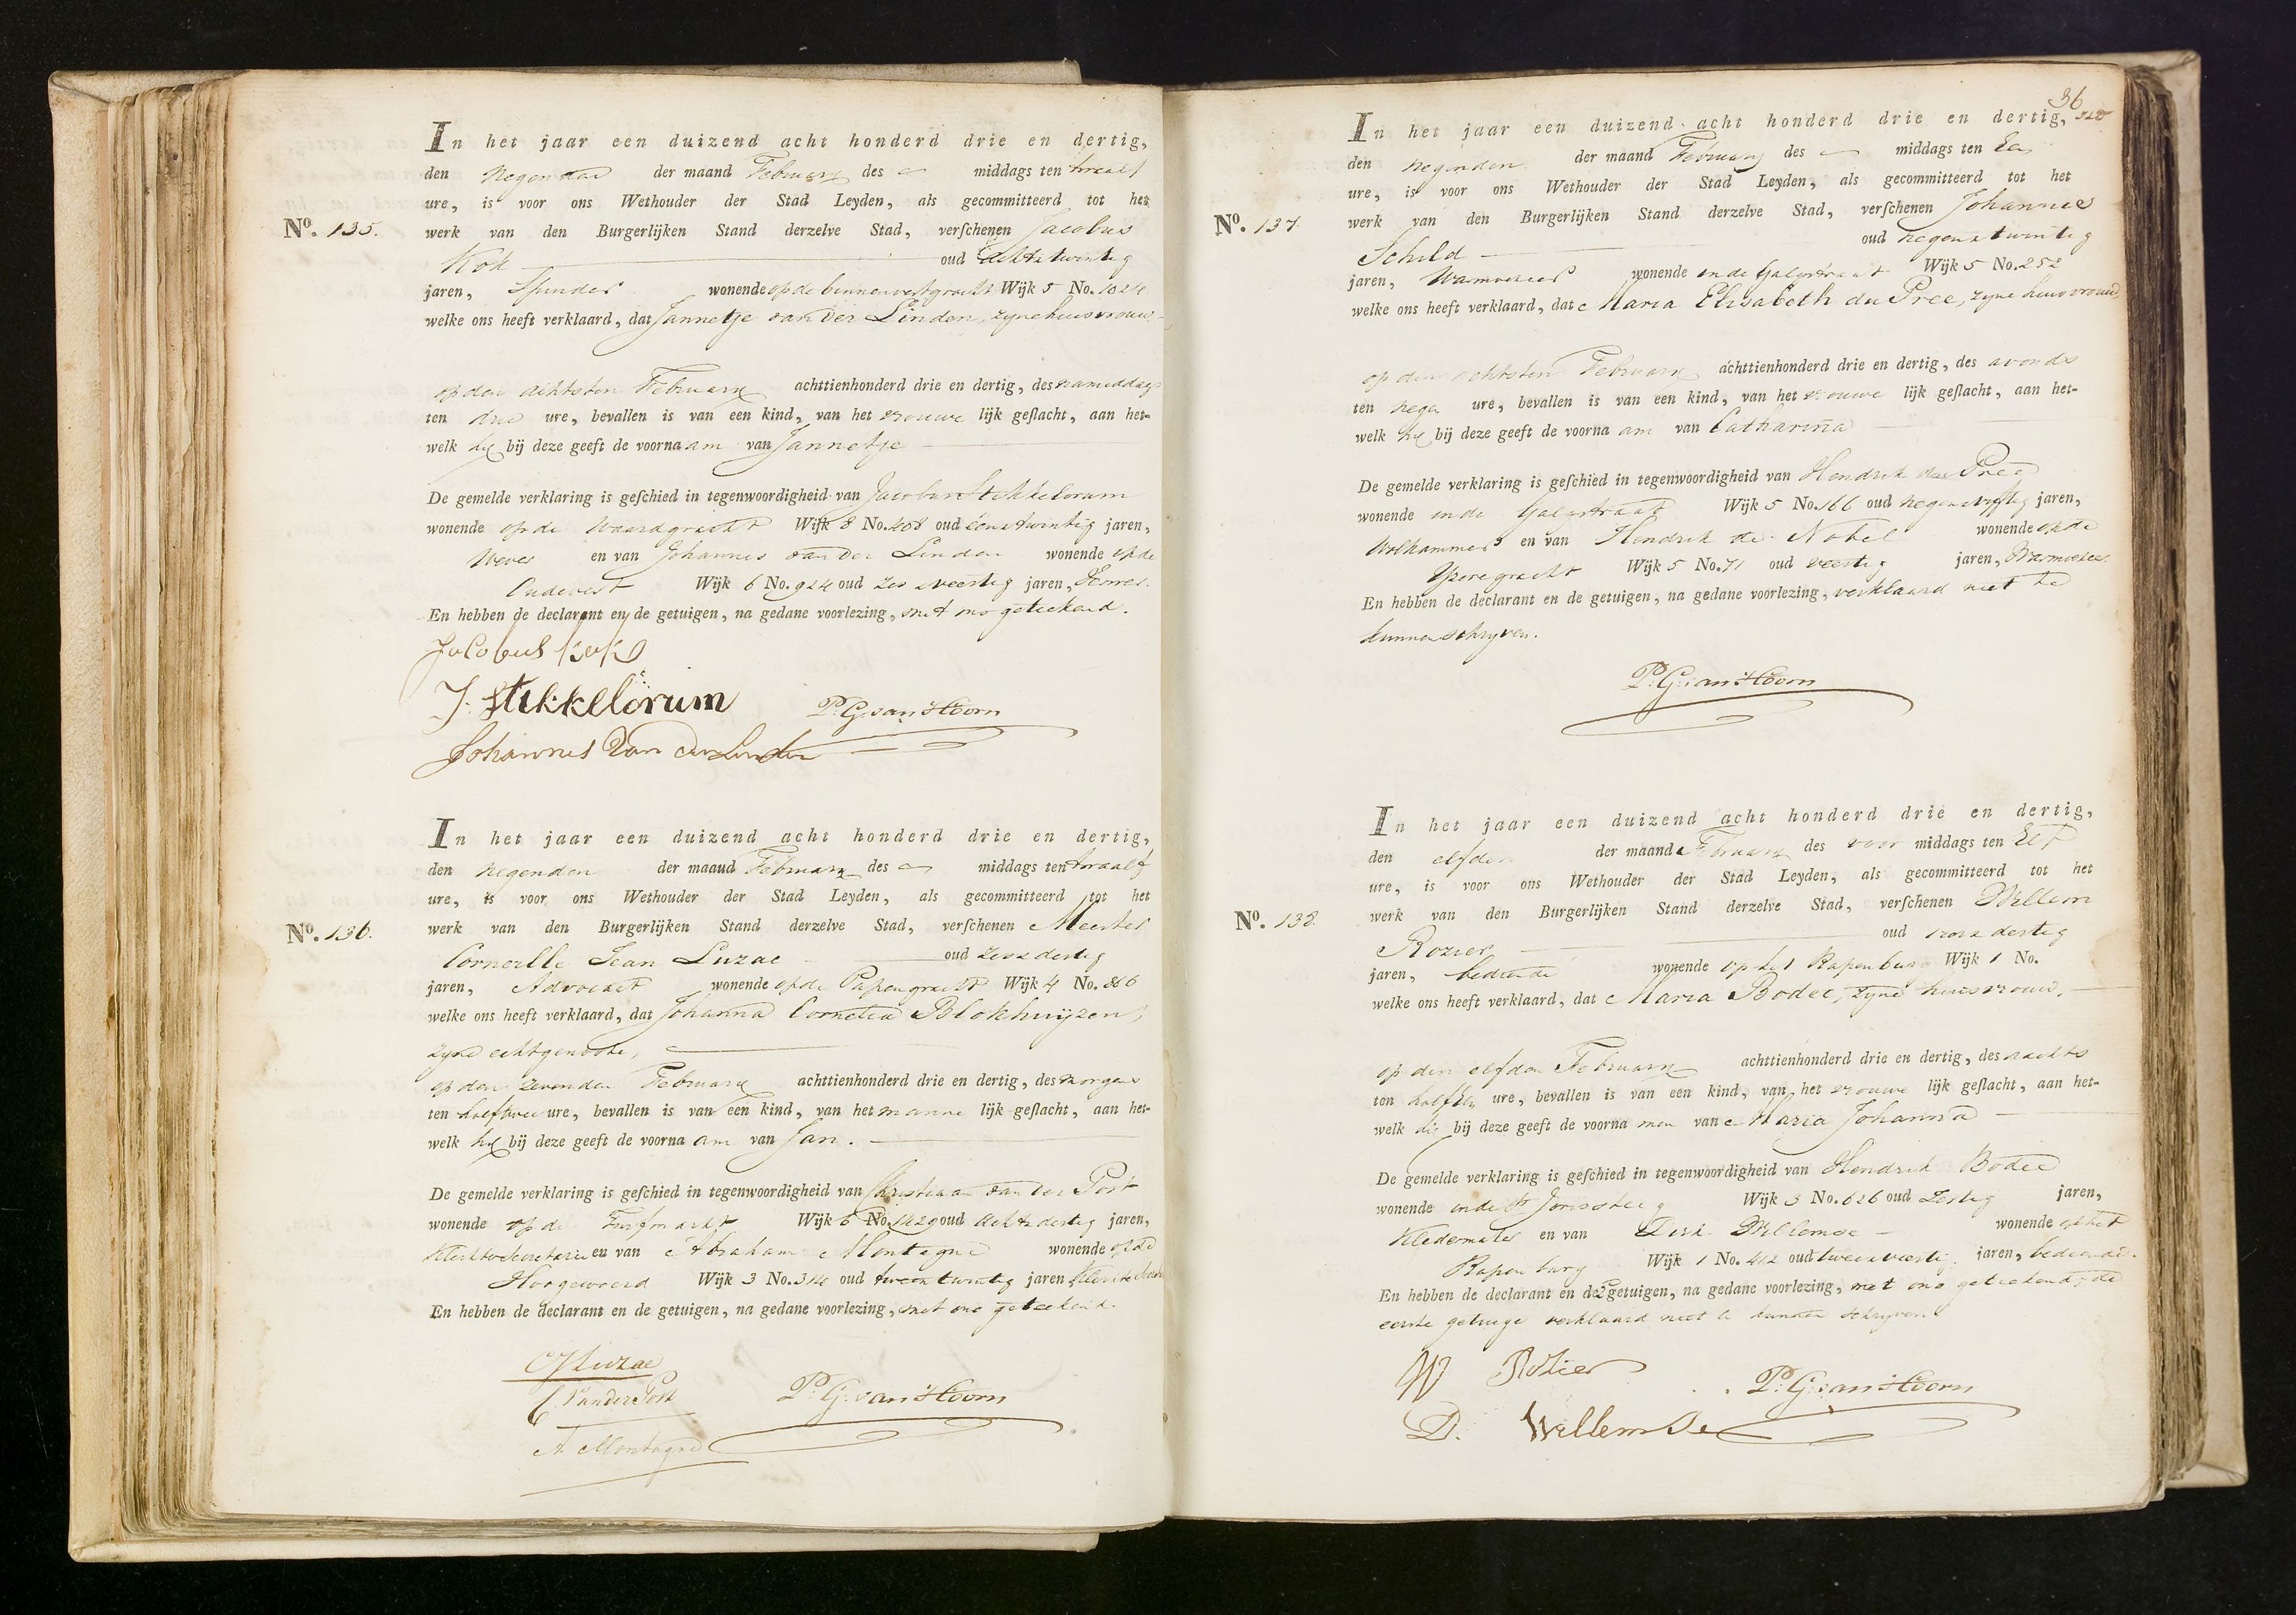 In het jaar een duizend acht honderd drie en dertig,
den negenden der maand February des middags ten twaalf
ure, is voor ons Wethouder der Stad Leyden, als gecommitteerd tot het
No. 135. werk van den Burgerlijken Stand derzelve Stad, verschenen Jacobus
Kok oud acht & twintig
jaren, Spinder wonende op de binnenvestgracht Wijk 5 No.
welke ons heeft verklaard, dat Jannetje van der Linden, zyne huisvrouw
op den achtsten February achttienhonderd drie en dertig, des namiddags
ten drie ure, bevallen is van een kind, van het vrouwe lijk geslacht, aan het-
welk hij bij deze geeft de voornaam van Jannetje
De gemelde verklaring is geschied in tegenwoordigheid van Jacobus Stikkelorum
wonende op de Waardgracht Wijk 8 No. 408 oud eenentwintig jaren,
Wever en van Johannes van der Linden wonende op de
Oudevest Wijk 6 No. 924 oud zes & veertig jaren,
En hebben de declarant en de getuigen, na gedane voorlezing, met ons geteekend.
Jacobus Kok
J. Stikkelorum P. G. van Hoorn
Johannes Van der Linden
In het jaar een duizend acht honderd drie en dertig,
den negenden der maand February des middags ten twaalf
ure, is voor ons Wethouder der Stad Leyden, als gecommitteerd tot het
No. 136. werk van den Burgerlijken Stand derzelve Stad, verschenen Meester
Corneille Jean Luzac oud zes & dertig
jaren, Advocaat wonende op de Papengracht Wijk 4 No. 866
welke ons heeft verklaard, dat Johanna Cornelia Blokhuijzen,
zyne echtgenoote,
op den zevenden February achttienhonderd drie en dertig, des morgens
ten half twee ure, bevallen is van een kind, van het manne lijk geslacht, aan het-
welk hij bij deze geeft de voornaam van Jan.
De gemelde verklaring is geschied in tegenwoordigheid van Christiaan van der Post
wonende op de Turfmarkt Wijk 6 No. 1429 oud acht & dertig jaren,
Klerk ter Secretarie en van Abraham Montagne wonende op de
Hoogewoerd Wijk 3 No. 314 oud twee & twintig jaren,
En hebben de declarant en de getuigen, na gedane voorlezing, met ons geteekend.
C J Luzac
C. van der Post P. G. van Hoorn
A. Montagne
36
In het jaar een duizend acht honderd drie en dertig,
den negenden der maand February des middags ten Een
ure, is voor ons Wethouder der Stad Leyden, als gecommitteerd tot het
No. 137 werk van den Burgerlijken Stand derzelve Stad, verschenen Johannes
Schild oud negen & twintig
jaren, Warmoezier wonende in de Galgstraat Wijk 5 No. 252
welke ons heeft verklaard, dat Maria Elisabeth du Pree, zyne huisvrouw,
op den achtsten February achttienhonderd drie en dertig, des avonds
ten negen ure, bevallen is van een kind, van het vrouwe lijk geslacht, aan het-
welk hij bij deze geeft de voornaam van Catharina
De gemelde verklaring is geschied in tegenwoordigheid van Hendrik du Pree
wonende in de Galgstraat Wijk 5 No. 166 oud negen & vyftig jaren,
Wolkammer en van Hendrik de Nobel wonende op de
Yperegracht Wijk 5 No. 71 oud veertig jaren, Warmoezier.
En hebben de declarant en de getuigen, na gedane voorlezing, verklaard niet te
kunnen schryven.
P. G. van Hoorn
In het jaar een duizend acht honderd drie en dertig,
den elfden der maand February des voor middags ten Elf
ure, is voor ons Wethouder der Stad Leyden, als gecommitteerd tot het
No. 138. werk van den Burgerlijken Stand derzelve Stad, verschenen Willem
Rozier oud vier & dertig
jaren, bediende wonende op het Rapenburg Wijk 1 No.
welke ons heeft verklaard, dat Maria Bodee, zyne huisvrouw,
op den elfden February achttienhonderd drie en dertig, des nachts
ten half ure, bevallen is van een kind, van het vrouwe lijk geslacht, aan het-
welk hij bij deze geeft de voornamen van Maria Johanna
De gemelde verklaring is geschied in tegenwoordigheid van Hendrik Bodee
wonende in de St. Jorissteeg Wijk 3 No. 626 oud zestig jaren,
Kledermaker en van Dirk Willemse wonende op het
Rapenburg Wijk 1 No. 412 oud twee & veertig jaren, bediende.
En hebben de declarant en de 2e getuigen, na gedane voorlezing, met ons geteekend, de
eerste getuige verklaard niet te kunnen schryven
W Rozier P. G. van Hoorn
D. Willemse